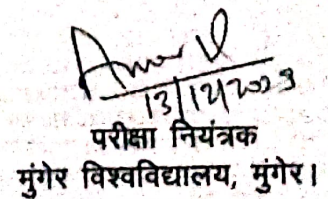 13/12/2023
परीक्षा नियंत्रक
मुंगेर विश्वविद्यालय, मुंगेर।